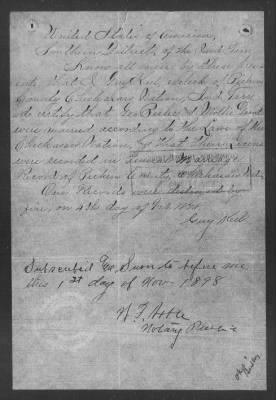 United States of America,
Southern District, of the Ind. Ter.
Know all men by these pres-
ents, that I Guy Keel, exclerk of Pickens
County Chickasaw Nation, Ind. Terr.
do certify that Geo. & Mollie
were married according to the Laws of the
Chickasaw Nation, & that their License
were recorded in
Record of Pickens County, Chickasaw Nation
Our Records were destroyed by
fire, on 4th day of Feb.
Guy Keel
Subscribed & Sworn to before me
this 1st day of Nov. 1898
Notary Public